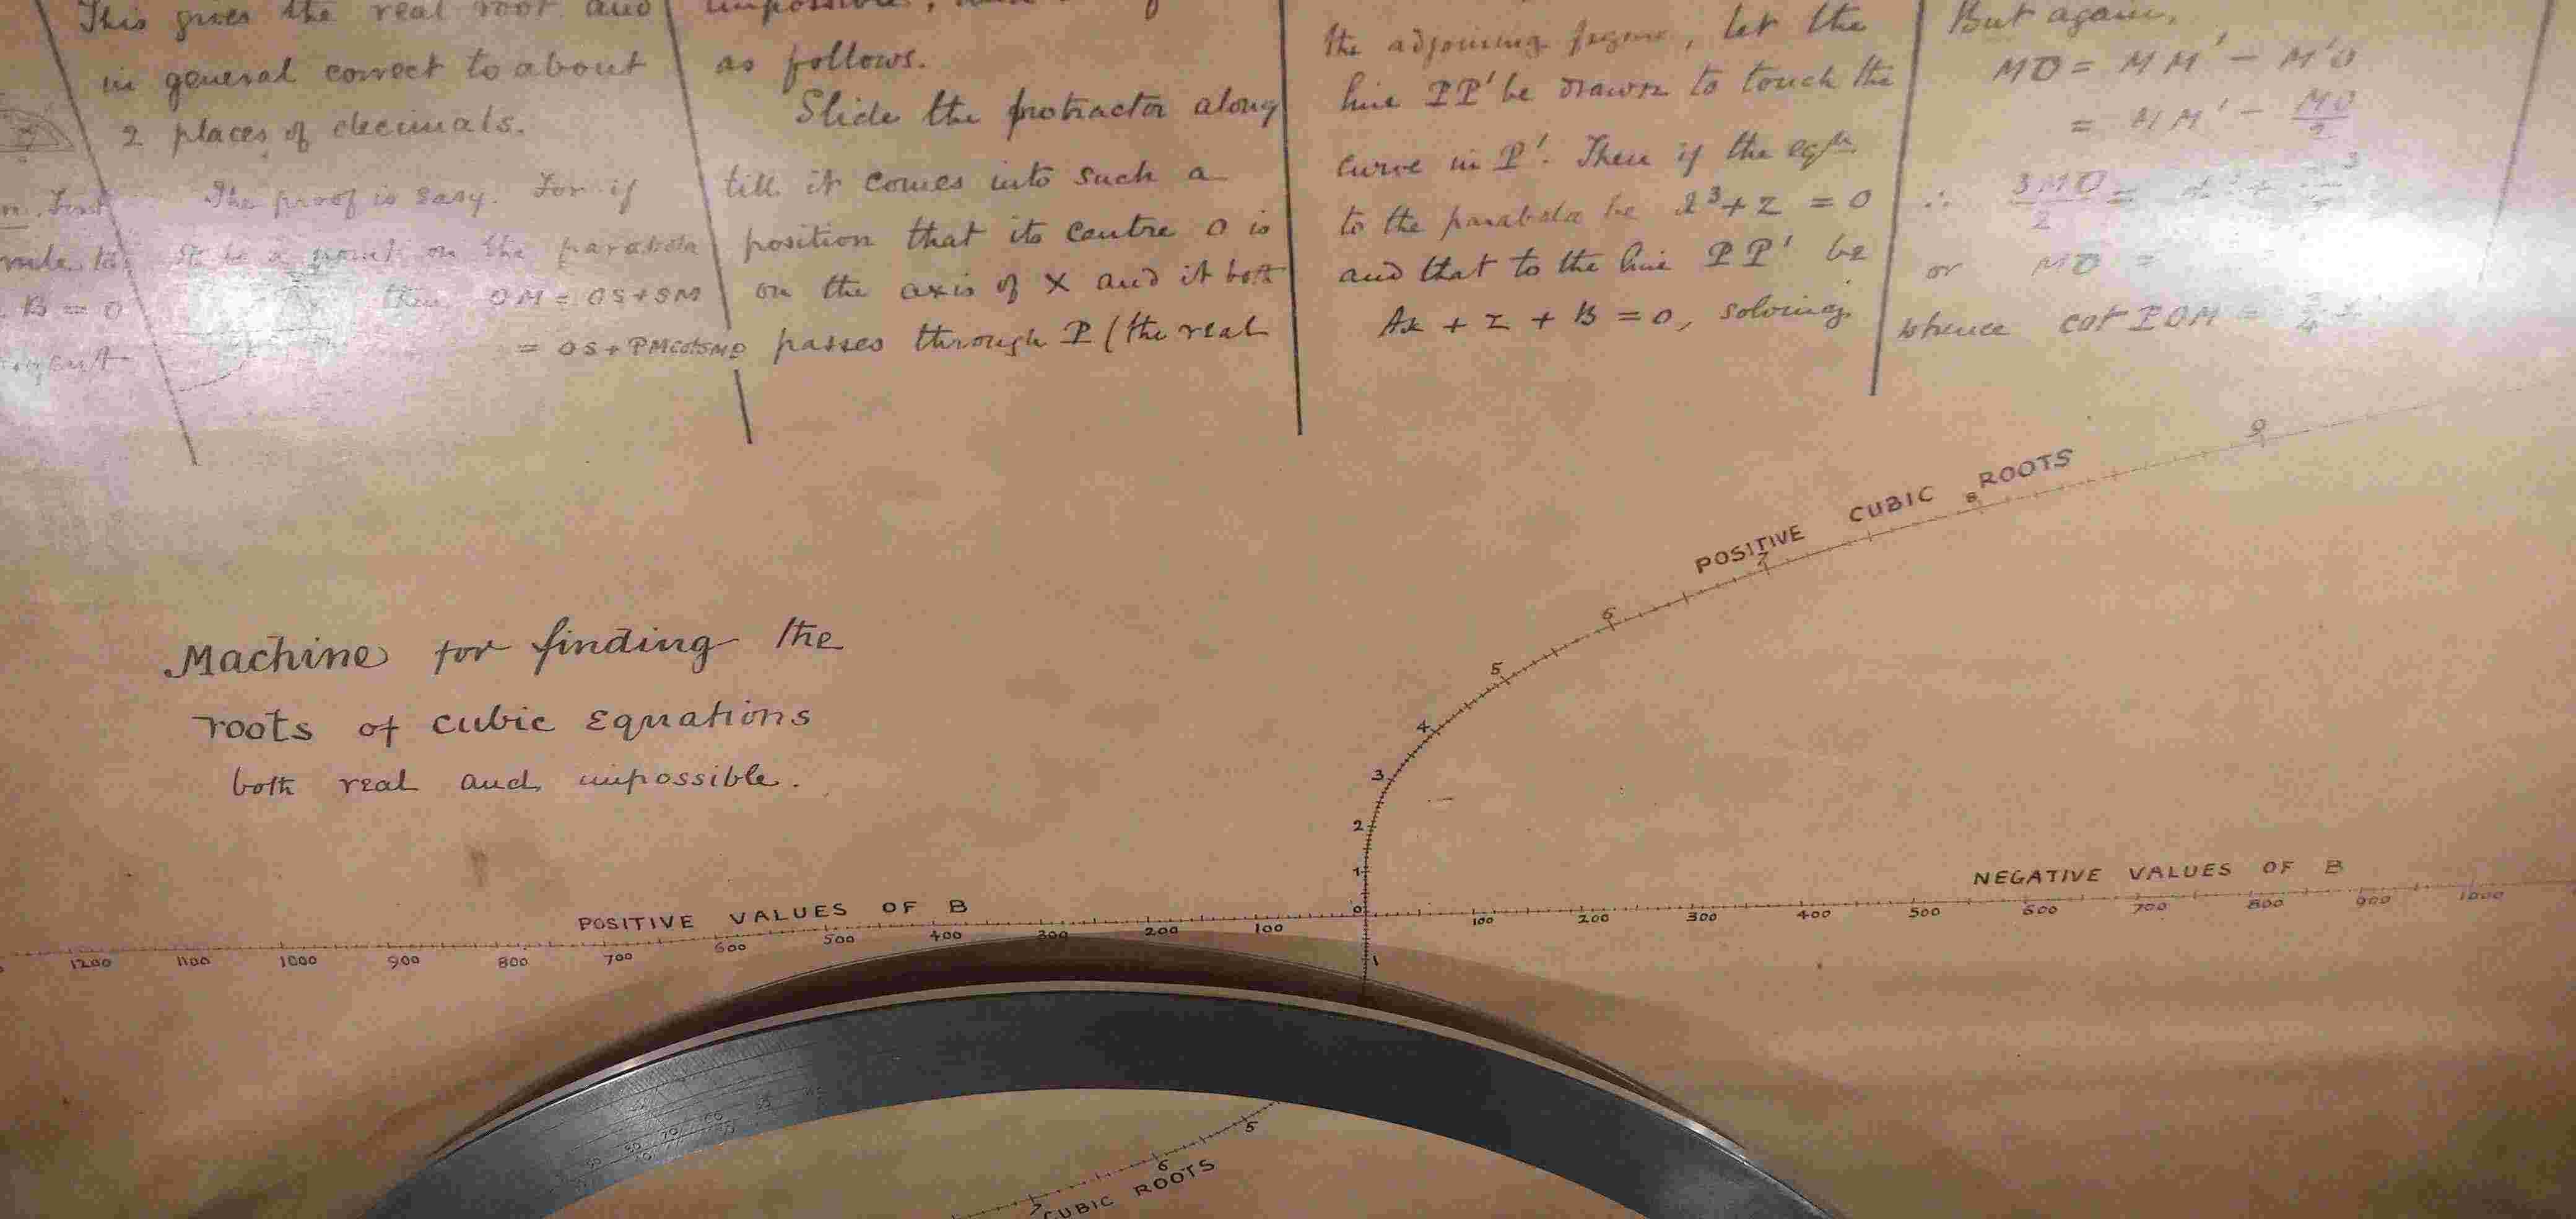 This gives the real root and
in general correct to about
2 places of decimals.
The proof is easy. For if
be a point on the parabola
then OM = OS + SM
= OS + PM cot SMP
B = 0
as follows.
Slide the protractor along
till it comes into such a
position that its centre O is
on the axis of X and it both
passes through P (the real
the adjoining figure, let the
line PP' be drawn to touch the
curve in P'. Then if the eqn
to the parabola be z³ + z = 0
and that to the line PP' be
Ax + z + B = 0, solving
But again,
MO = MM' - M'O
= MM' - MO
∴ 3MO/2 =
or MO =
whence cot POM = 
Machine for finding the
roots of cubic Equations
both real and impossible.
POSITIVE CUBIC ROOTS
9
8
7
6
5
4
3
2
1
0
1
NEGATIVE VALUES OF B
100 200 300 400 500 600 700 800 900 1000
POSITIVE VALUES OF B
1200 1100 1000 900 800 700 600 500 400 300 200 100
5
6
7
CUBIC ROOTS